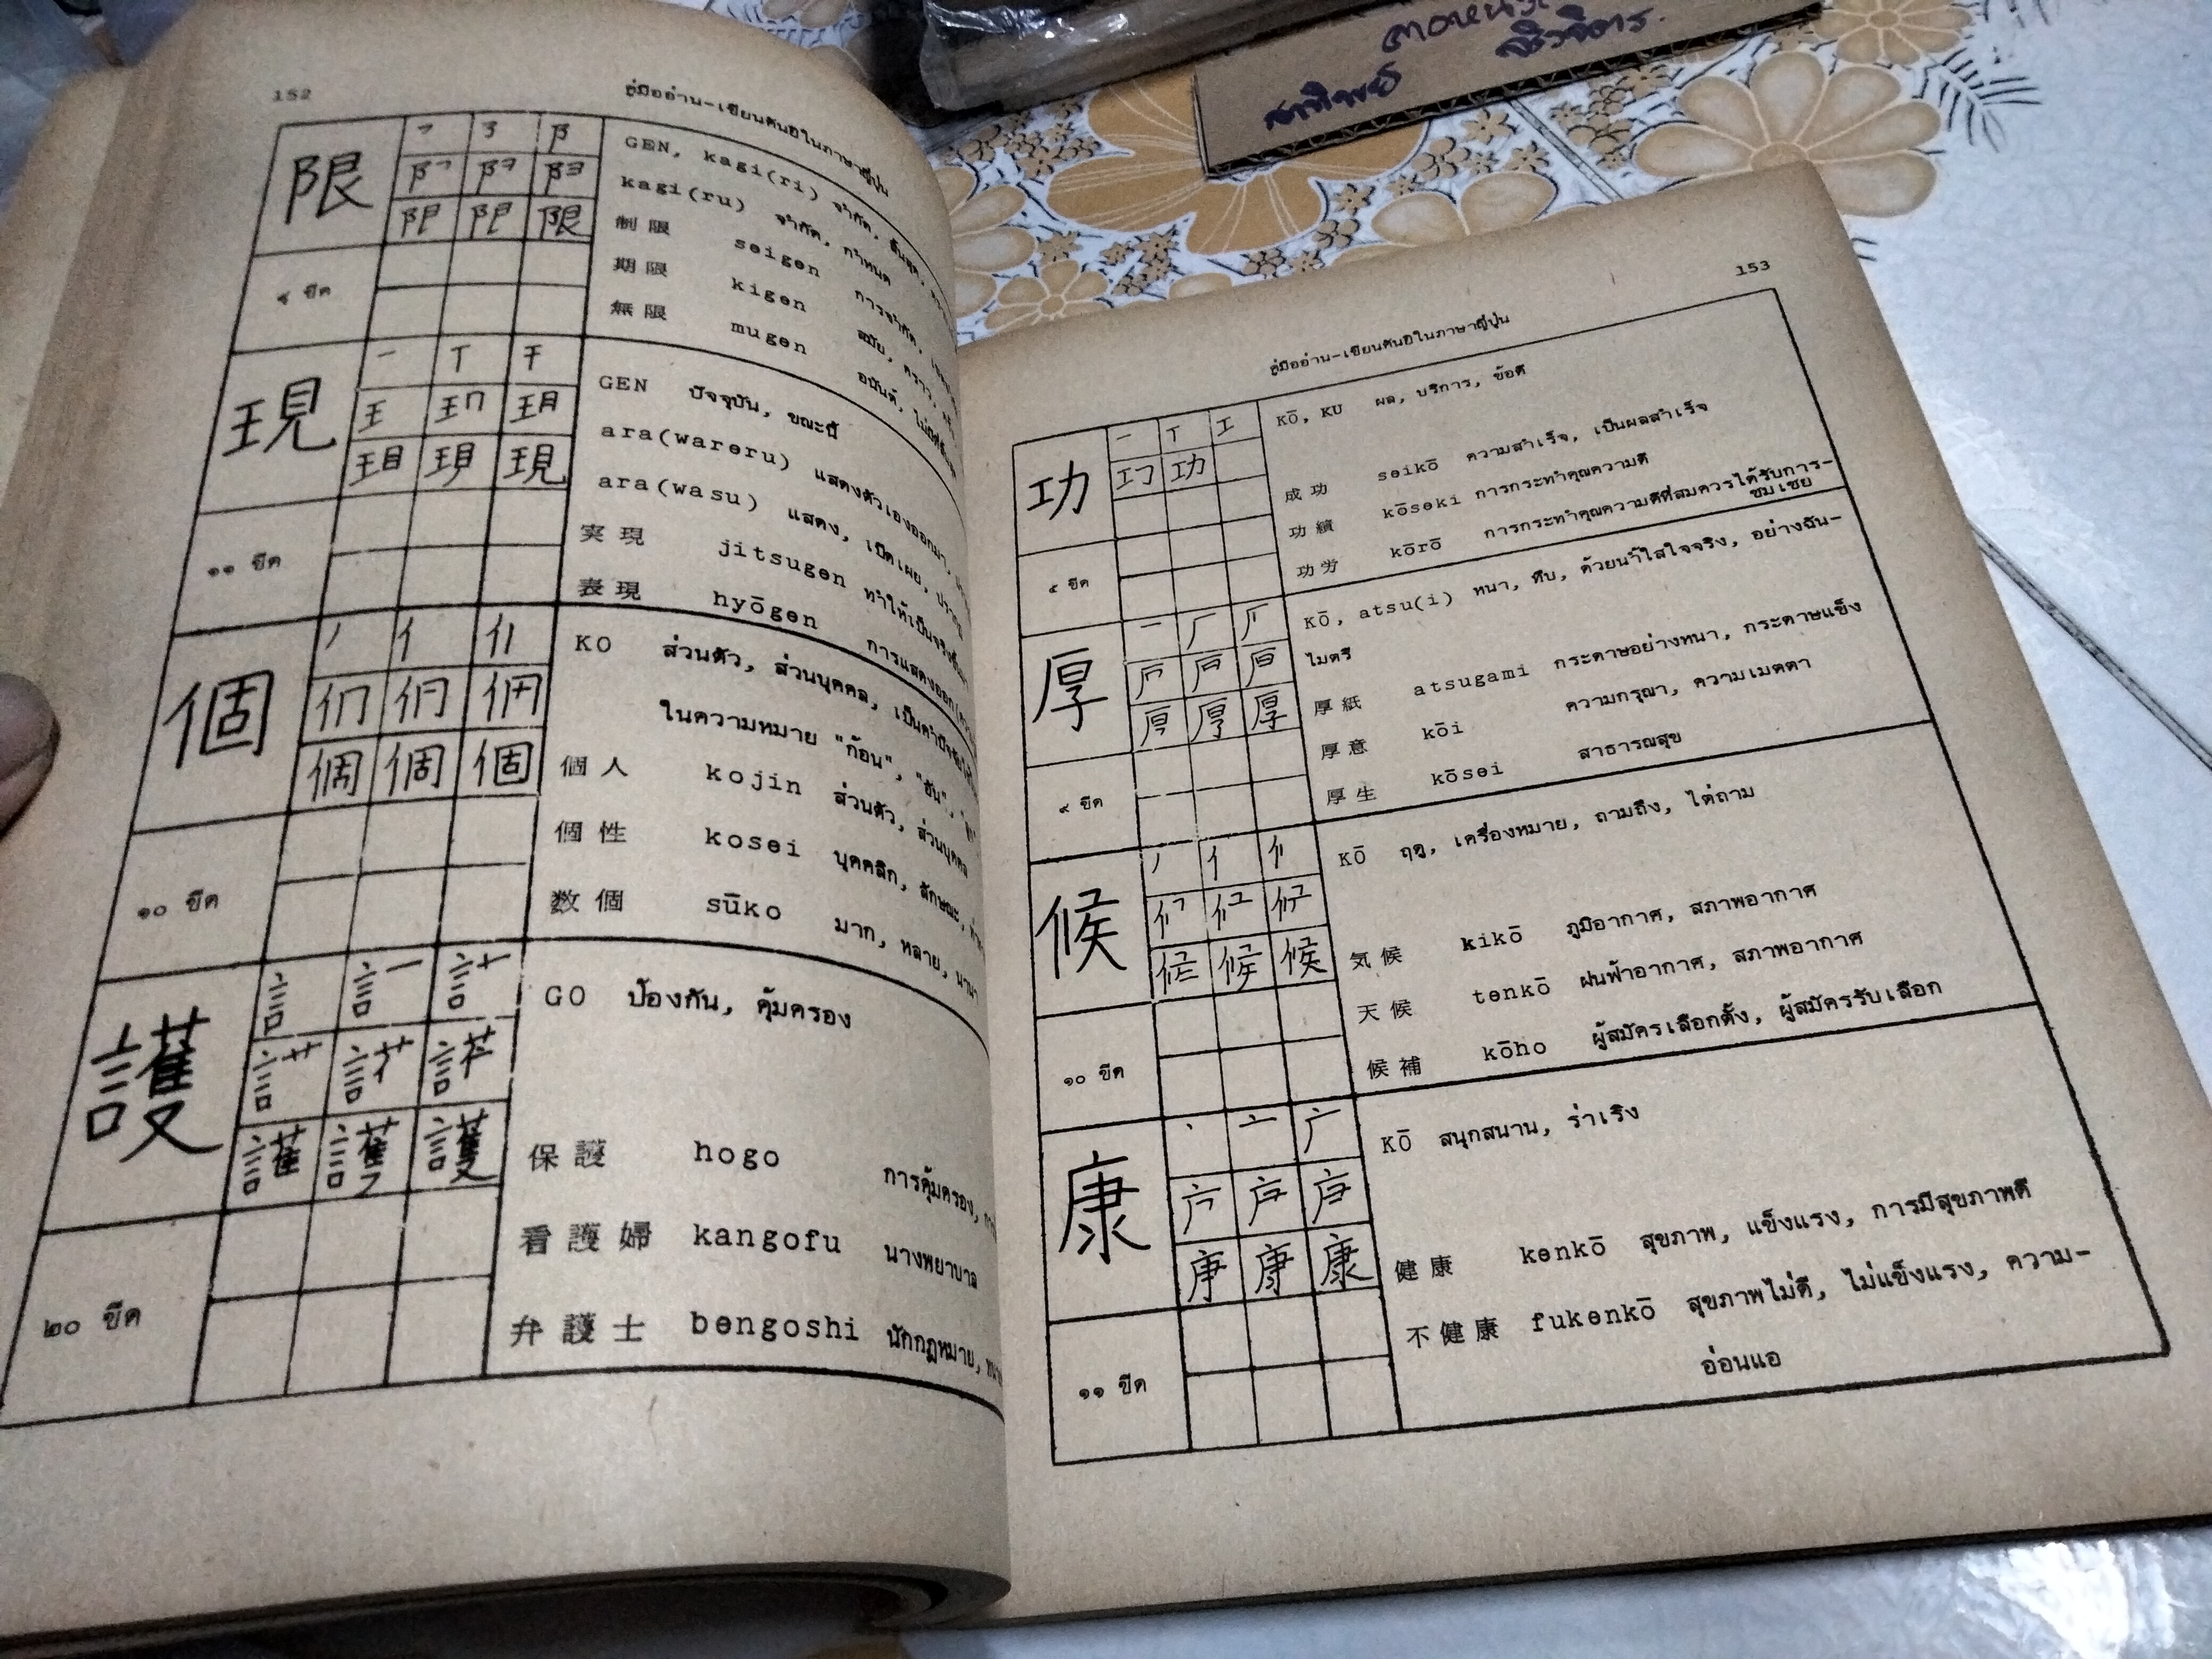 152
คู่มืออ่าน-เขียนคันยิในภาษาญี่ปุ่น
限
GEN, kagi(ri) จำกัด, สิ้นสุด,
kagi(ru) จำกัด, กำหนด
制限 seigen การจำกัด,
期限 kigen สมัย, คราว,
無限 mugen อนันต์,
๙ ขีด
現
GEN ปัจจุบัน, ขณะนี้
ara(wareru) แสดงตัวเองออกมา,
ara(wasu) แสดง, เปิดเผย,
実現 jitsugen ทำให้เป็นจริงขึ้นมา
表現 hyōgen การแสดงออก
๑๑ ขีด
個
KO ส่วนตัว, ส่วนบุคคล,
ในความหมาย "ก้อน", "อัน",
個人 kojin ส่วนตัว, ส่วนบุคคล
個性 kosei บุคคลิก, ลักษณะ,
数個 sūko มาก, หลาย, นานา
๑๐ ขีด
護
GO ป้องกัน, คุ้มครอง
保護 hogo การคุ้มครอง,
看護婦 kangofu นางพยาบาล
弁護士 bengoshi นักกฎหมาย,
๒๐ ขีด
153
คู่มืออ่าน-เขียนคันยิในภาษาญี่ปุ่น
功
KŌ, KU ผล, บริการ, ข้อดี
成功 seikō ความสำเร็จ, เป็นผลสำเร็จ
功績 kōseki การกระทำคุณความดี
功労 kōrō การกระทำคุณความดีที่สมควรได้รับการ-
ชมเชย
๕ ขีด
厚
KŌ, atsu(i) หนา, ทึบ, ด้วยน้ำใสใจจริง, อย่างฉัน-
ไมตรี
厚紙 atsugami กระดาษอย่างหนา, กระดาษแข็ง
厚意 kōi ความกรุณา, ความเมตตา
厚生 kōsei สาธารณสุข
๙ ขีด
候
KŌ ฤดู, เครื่องหมาย, ถามถึง, ไต่ถาม
気候 kikō ภูมิอากาศ, สภาพอากาศ
天候 tenkō ฝนฟ้าอากาศ, สภาพอากาศ
候補 kōho ผู้สมัครเลือกตั้ง, ผู้สมัครรับเลือก
๑๐ ขีด
康
KŌ สนุกสนาน, ร่าเริง
健康 kenkō สุขภาพ, แข็งแรง, การมีสุขภาพดี
不健康 fukenkō สุขภาพไม่ดี, ไม่แข็งแรง, ความ-
อ่อนแอ
๑๑ ขีด